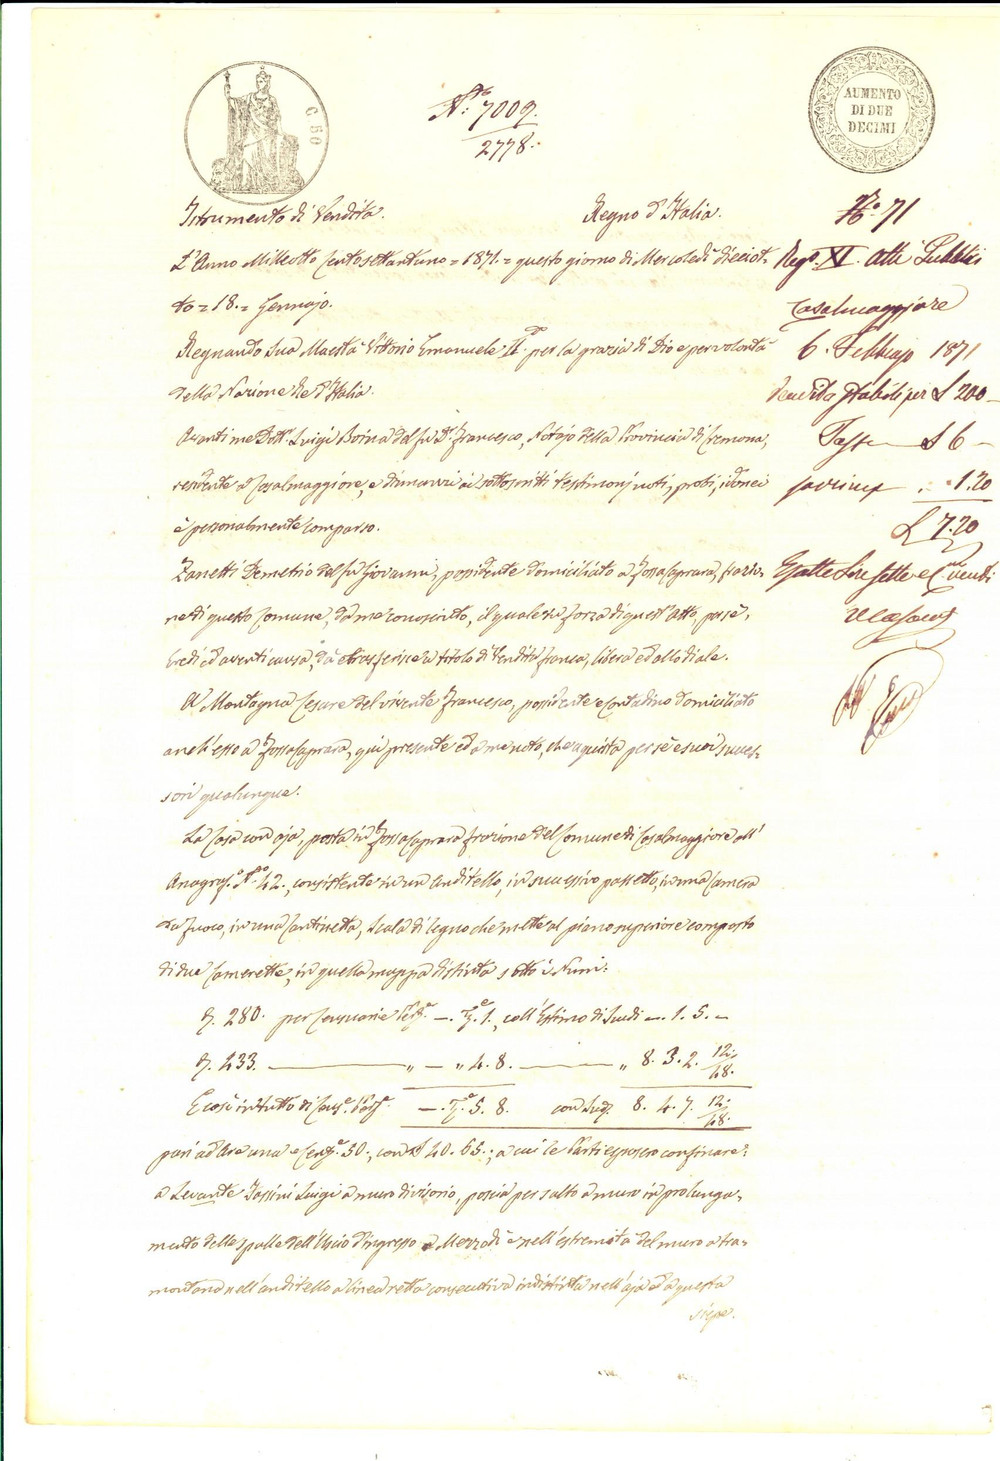 C 50
AUMENTO
DI DUE
DECIMI
N.° 7009.
2778.
Istrumento di Vendita. Regno d'Italia.
L'Anno Milleotto Centosettantuno = 1871. = questo giorno di Mercoledì dieciot=
to = 18. = Gennajo.
Regnando Sua Maestà Vittorio Emanuele II.do per la grazia di Dio e per volontà
della Nazione Re d'Italia.
Avanti me Dott.r Luigi Boina del fu D.r Francesco, Notajo della Provincia di Cremona,
residente a Casalmaggiore, e dinnanzi ai sottoscritti testimonj noti, probi, idonei
è personalmente comparso.
Zanetti Demetrio del fu Giovanni, possidente domiciliato a Fossacaprara, frazio=
ne di questo Comune, da me conosciuto, il quale in forza di quest'Atto, per sé,
Eredi ed aventi causa, dà e trasferisce a titolo di Vendita franca, libera ed allodiale.
A Montagna Cesare del vivente Francesco, possidente e Contadino domiciliato
anch'esso a Fossacaprara, quì presente ed a me noto, che aquista per sé e suoi succes=
sori qualunque.
La Casa con aja, posta in Fossacaprara frazione del Comune di Casalmaggiore all'
Anagraf.o N.° 42., consistente in un Anditello, in successivo passetto, in una Camera
da fuoco, in una Cantinetta, Scala di legno che mette al piano superiore composto
di due Camerette, in quella mappa distinta sotto i Num:
280. per Censuarie Pert.e —. T.e 1., coll'Estimo di Scudi —. 1. 5. —
433. — „ — „ 4. 8. — „ 8. 3. 2. 12/48.
E così in tutto di Cens.e Pert.e —. T.e 5. 8. con Scudi 8. 4. 7. 12/48.
pari ad Are una e Cent.e 30., con £ 40. 65.; a cui le Parti esposero confinare:
a Levante Tassini Luigi a muro divisorio, poscia per salto a muro in prolunga=
mento della spalla dell'Uscio d'ingresso a Mezzodì e nell'estremità del muro a tra=
montana nell'anditello a linea retta consecutiva indistinta nell'aja ed a questa
siepe.
N.° 71
Reg.° XI. Atti Pubblici
Casalmaggiore
6. Febbrajo 1871
Vendita Stabili per £ 200 —
Tassa — £ 6 —
1.20
£ 7.20
Esatte Lire sette e C.mi venti